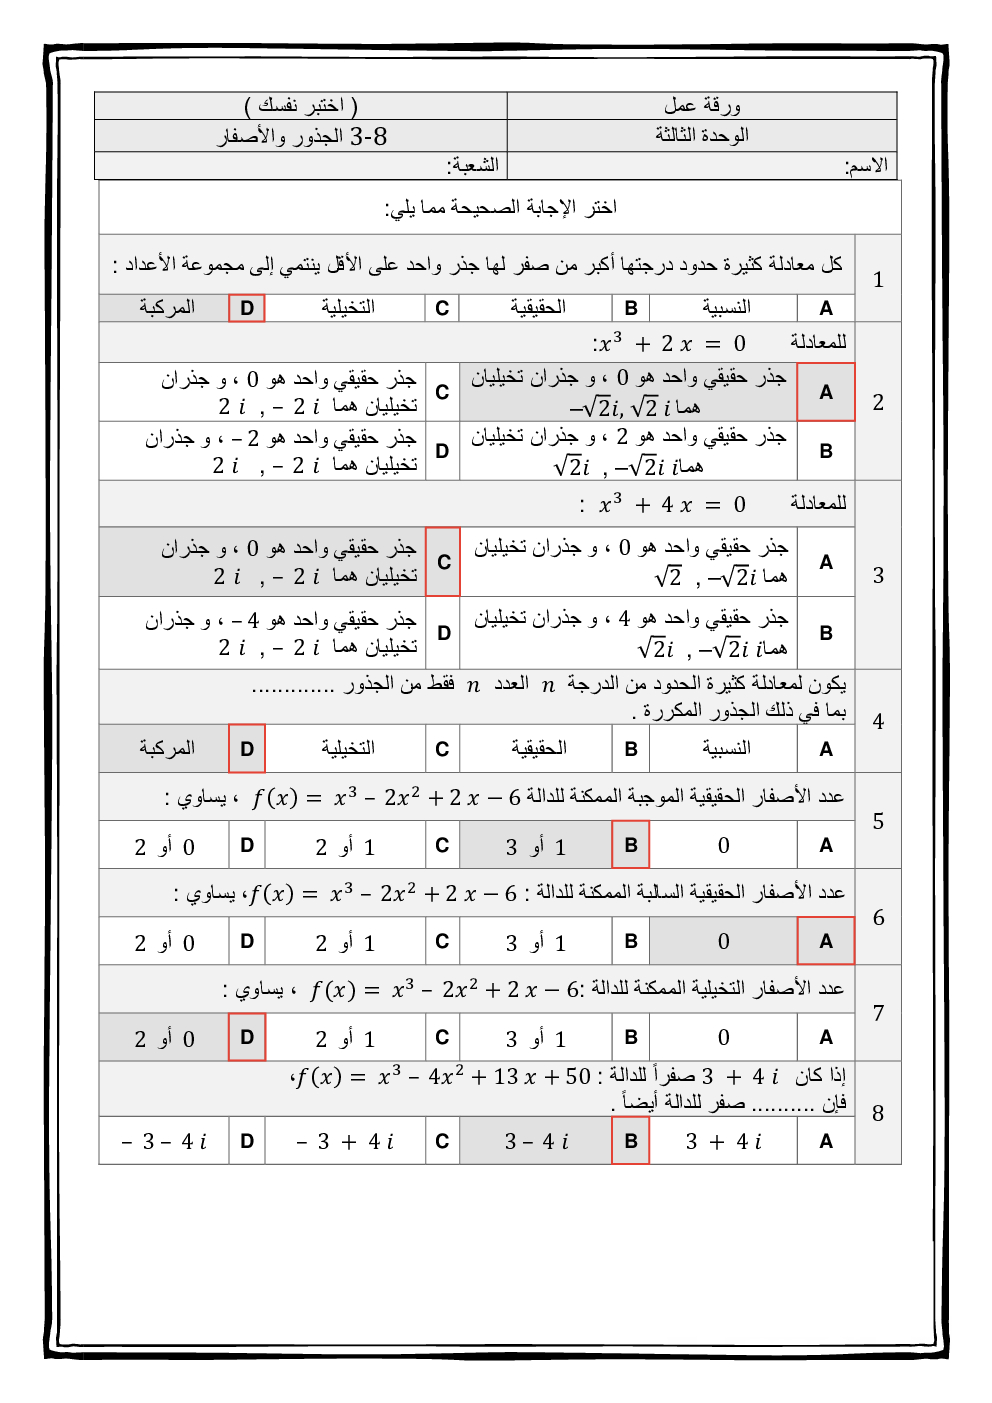 ورقة عمل ( اختبر نفسك )
الوحدة الثالثة 3-8 الجذور والأصفار
الاسم: الشعبة:
اختر الإجابة الصحيحة مما يلي:
1 كل معادلة كثيرة حدود درجتها أكبر من صفر لها جذر واحد على الأقل ينتمي إلى مجموعة الأعداد :
A النسبية B الحقيقية C التخيلية D المركبة
2 للمعادلة x³ + 2 x = 0:
A جذر حقيقي واحد هو 0 ، و جذران تخيليان
هما −√2i, √2 i
C جذر حقيقي واحد هو 0 ، و جذران
تخيليان هما 2 i , – 2 i
B جذر حقيقي واحد هو 2 ، و جذران تخيليان
هما √2i , −√2i i
D جذر حقيقي واحد هو 2 – ، و جذران
تخيليان هما 2 i , – 2 i
3 للمعادلة x³ + 4 x = 0 :
A جذر حقيقي واحد هو 0 ، و جذران تخيليان
هما √2 , −√2i
C جذر حقيقي واحد هو 0 ، و جذران
تخيليان هما 2 i , – 2 i
B جذر حقيقي واحد هو 4 ، و جذران تخيليان
هما √2i , −√2i i
D جذر حقيقي واحد هو 4 – ، و جذران
تخيليان هما 2 i , – 2 i
4 يكون لمعادلة كثيرة الحدود من الدرجة n العدد n فقط من الجذور .............
بما في ذلك الجذور المكررة .
A النسبية B الحقيقية C التخيلية D المركبة
5 عدد الأصفار الحقيقية الموجبة الممكنة للدالة f(x) = x³ – 2x² + 2 x − 6 ، يساوي :
A 0 B 1 أو 3 C 1 أو 2 D 0 أو 2
6 عدد الأصفار الحقيقية السالبة الممكنة للدالة : f(x) = x³ – 2x² + 2 x − 6، يساوي :
A 0 B 1 أو 3 C 1 أو 2 D 0 أو 2
7 عدد الأصفار التخيلية الممكنة للدالة :f(x) = x³ – 2x² + 2 x − 6 ، يساوي :
A 0 B 1 أو 3 C 1 أو 2 D 0 أو 2
8 إذا كان 3 + 4 i صفراً للدالة : f(x) = x³ – 4x² + 13 x + 50،
فإن .......... صفر للدالة أيضاً .
A 3 + 4 i B 3 – 4 i C – 3 + 4 i D – 3 – 4 i